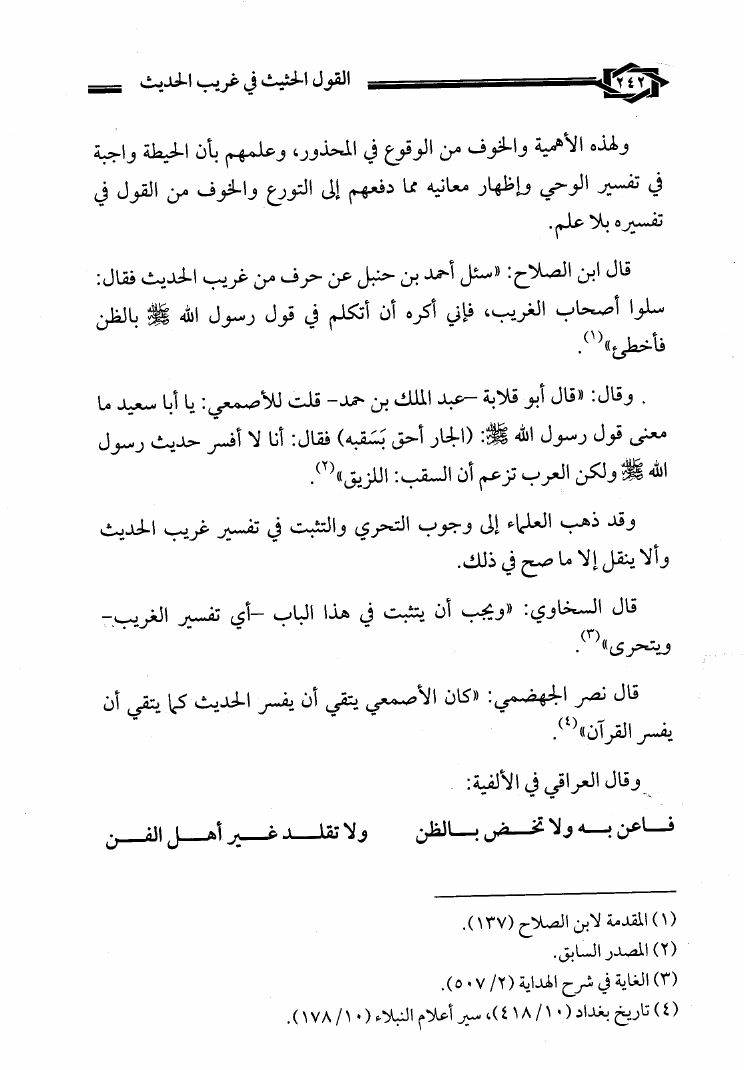 ٢٤٢ القول الحثيث في غريب الحديث
ولهذه الأهمية والخوف من الوقوع في المحذور، وعلمهم بأن الحيطة واجبة
في تفسير الوحي وإظهار معانيه مما دفعهم إلى التورع والخوف من القول في
تفسيره بلا علم.
قال ابن الصلاح: «سئل أحمد بن حنبل عن حرف من غريب الحديث فقال:
سلوا أصحاب الغريب، فإني أكره أن أتكلم في قول رسول الله ﷺ بالظن
فأخطئ»(١).
وقال: «قال أبو قلابة –عبد الملك بن حمد– قلت للأصمعي: يا أبا سعيد ما
معنى قول رسول الله ﷺ: (الجار أحق بَسَقبه) فقال: أنا لا أفسر حديث رسول
الله ﷺ ولكن العرب تزعم أن السقب: اللزيق»(٢).
وقد ذهب العلماء إلى وجوب التحري والتثبت في تفسير غريب الحديث
وألا ينقل إلا ما صح في ذلك.
قال السخاوي: «ويجب أن يتثبت في هذا الباب –أي تفسير الغريب–
ويتحرى»(٣).
قال نصر الجهضمي: «كان الأصمعي يتقي أن يفسر الحديث كما يتقي أن
يفسر القرآن»(٤).
وقال العراقي في الألفية:
فـاعن بـه ولا تخـض بـالظن ولا تقلـد غـير أهـل الفـن
(١) المقدمة لابن الصلاح (١٣٧).
(٢) المصدر السابق.
(٣) الغاية في شرح الهداية (٢/ ٥٠٧).
(٤) تاريخ بغداد (١٠/ ٤١٨)، سير أعلام النبلاء (١٠/ ١٧٨).